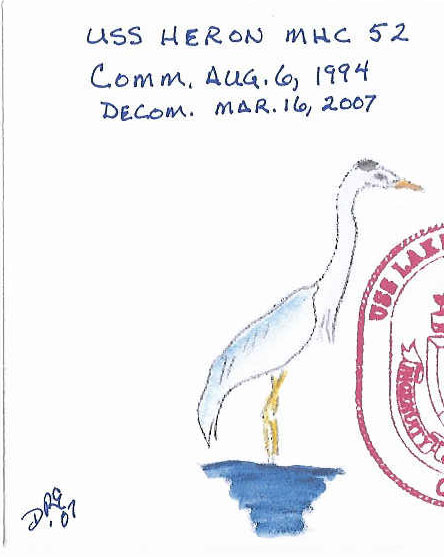 USS HERON MHC 52
COMM. AUG. 6, 1994
DECOM. MAR. 16, 2007
USS LAK
INGENUITY
DRG
'07